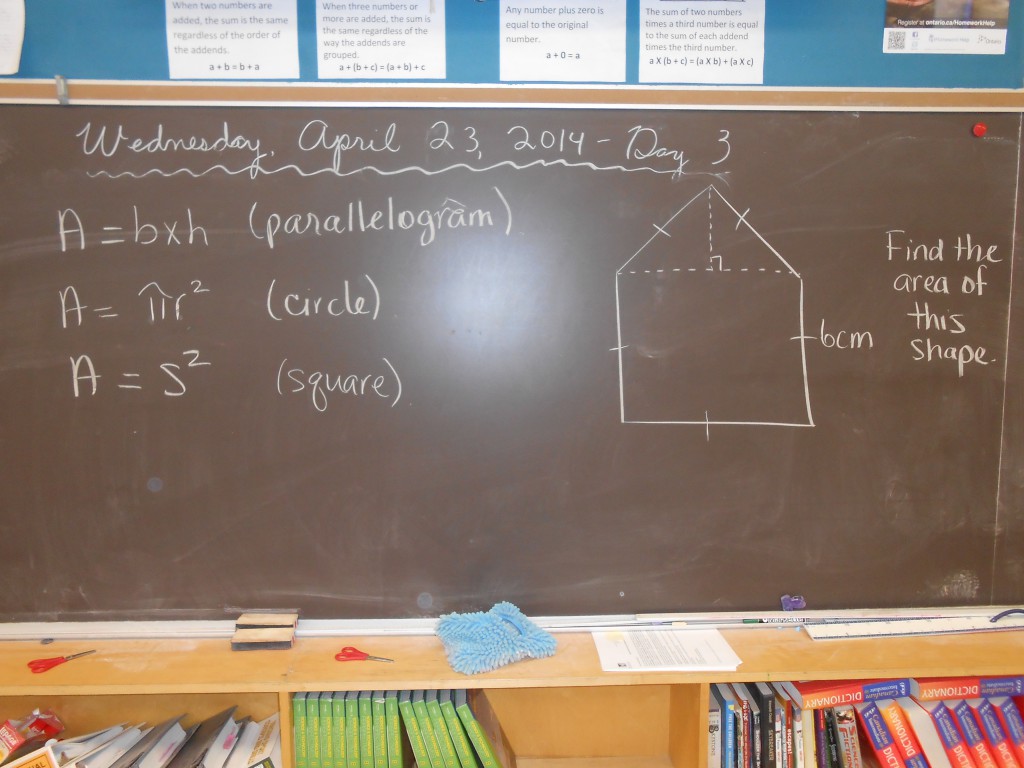 When two numbers are
added, the sum is the same
regardless of the order of
the addends.
a + b = b + a
When three numbers or
more are added, the sum is
the same regardless of the
way the addends are
grouped.
a + (b + c) = (a + b) + c
Any number plus zero is
equal to the original
number.
a + 0 = a
The sum of two numbers
times a third number is equal
to the sum of each addend
times the third number.
a X (b + c) = (a X b) + (a X c)
Register at ontario.ca/HomeworkHelp
Homework Help
Ontario
Wednesday, April 23, 2014 - Day 3
A = bxh (parallelogram)
A = πr² (circle)
A = s² (square)
6cm
Find the
area of
this
shape.
DICTIONARY
DICTIONARY
Canadian
DICTION
Canadian
DICTION